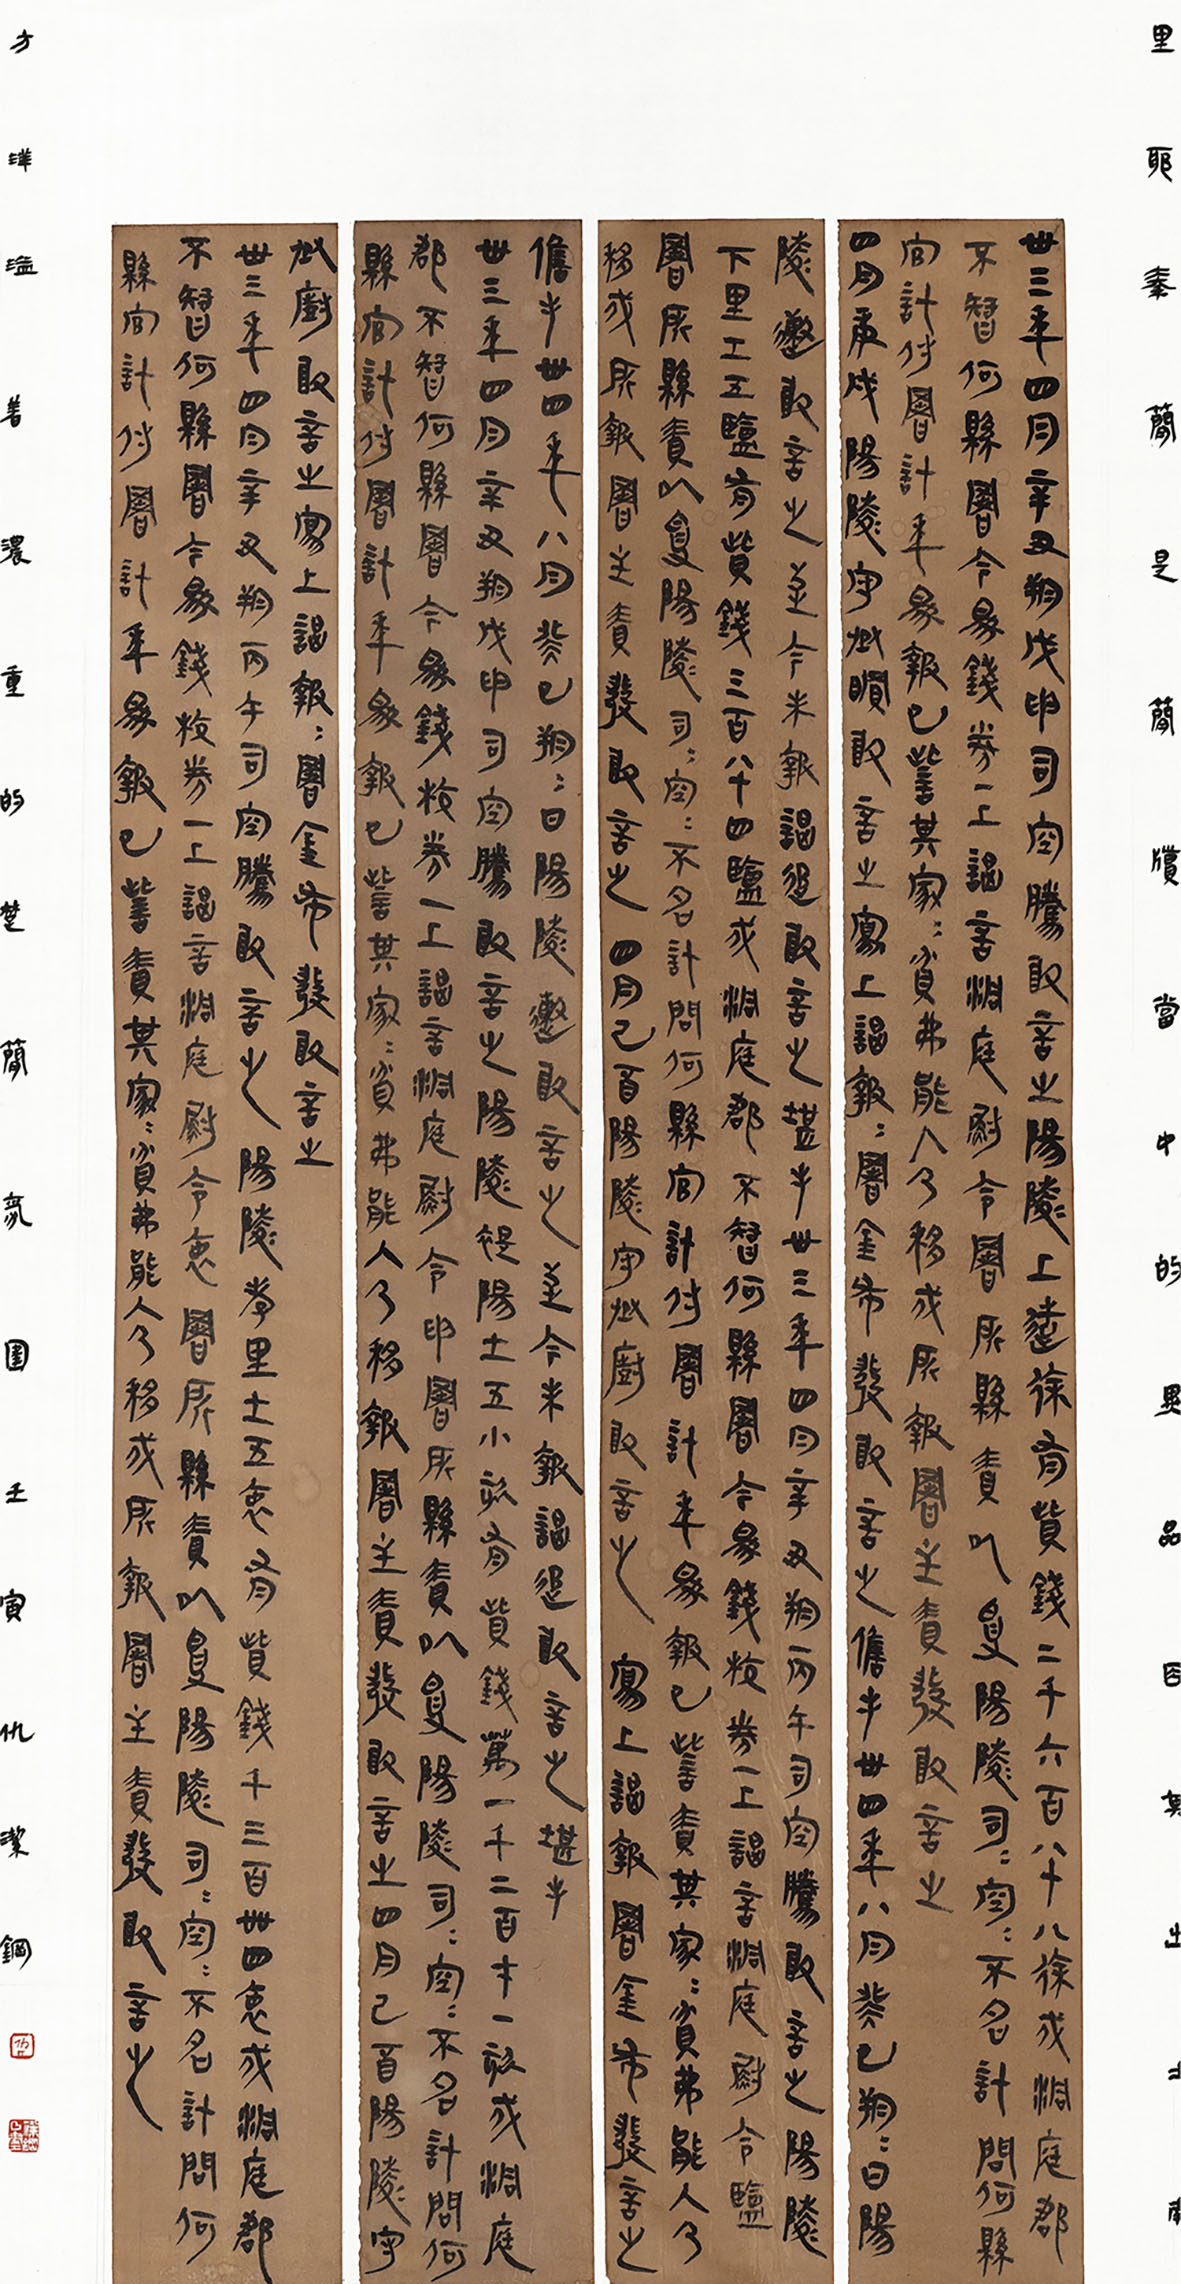 里耶秦簡是簡牘當中的異品因其出土南
卅三年四月辛丑朔戊申司空騰敢言之陽陵上造徐有貲錢二千六百八十八徐戍洞庭郡
不智何縣署今為錢券一上謁言洞庭尉令署所縣責以受陽陵司=空=不名計問何縣
官計付署計年為報已訾其家=貧弗能入乃移戍所報署主責發敢言之
四月庚戌陽陵守丞瞚敢言之寫上謁報=署金布發敢言之儋手卅四年八月癸巳朔=日陽
陵遫敢言之至今未報謁追敢言之堪手卅三年四月辛丑朔丙午司空騰敢言之陽陵
下里士五鹽有貲錢三百八十四鹽戍洞庭郡不智何縣署今為錢校券一上謁言洞庭尉令鹽
署所縣責以受陽陵司=空=不名計問何縣官計付署計年為報已訾責其家=貧弗能入乃
移戍所報署主責發敢言之四月己酉陽陵守丞廚敢言之寫上謁報署金布發言之
儋手卅四年八月癸巳朔=日陽陵遫敢言之至今未報謁追敢言之堪手
卅三年四月辛丑朔戊申司空騰敢言之陽陵禔陽士五小欬有貲錢萬一千二百七十一欬戍洞庭
郡不智何縣署今為錢校券一上謁言洞庭尉令申署所縣責以受陽陵司=空=不名計問何
縣官計付署計年為報已訾其家=貧弗能入乃移報署主責發敢言之四月己酉陽陵守
丞廚敢言之寫上謁報=署金布發敢言之
卅三年四月辛丑朔丙午司空騰敢言之陽陵孝里士五衷有貲錢千三百卌四衷戍洞庭郡
不智何縣署今為錢校券一上謁言洞庭尉令衷署所縣責以受陽陵司=空=不名計問何
縣官計付署計年為報已訾責其家=貧弗能入乃移戍所報署主責發敢言之
方洋溢着濃重的楚簡氛圍壬寅仇潔鋼